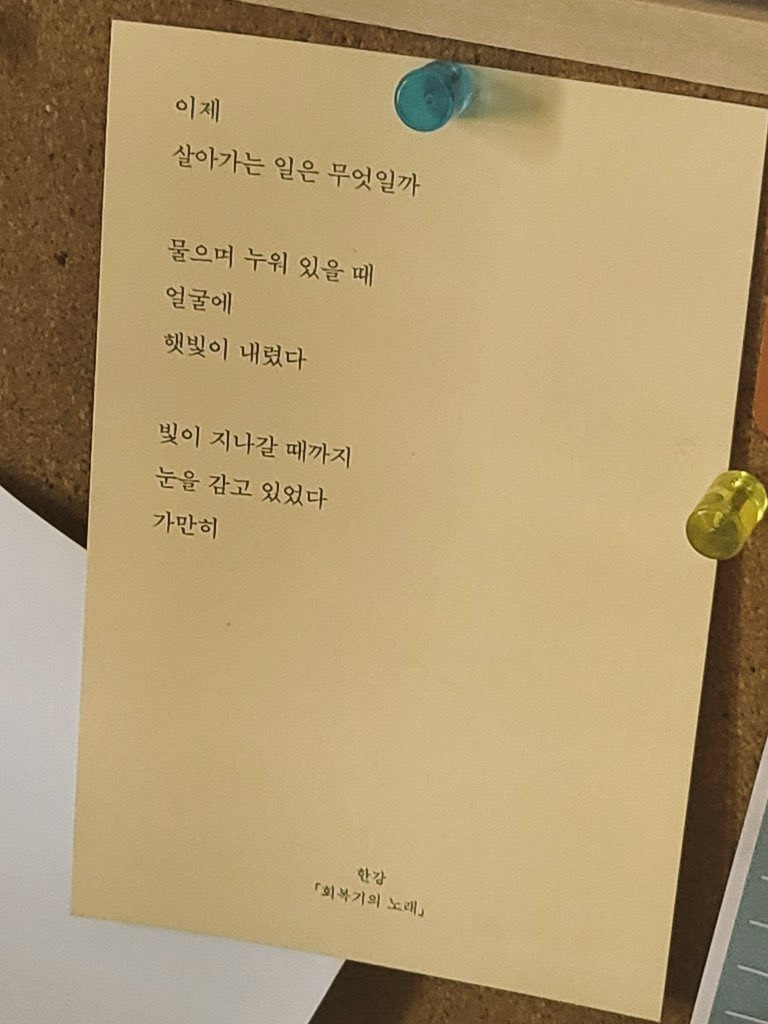 이제
살아가는 일은 무엇일까
물으며 누워 있을 때
얼굴에
햇빛이 내렸다
빛이 지나갈 때까지
눈을 감고 있었다
가만히
한강
「회복기의 노래」